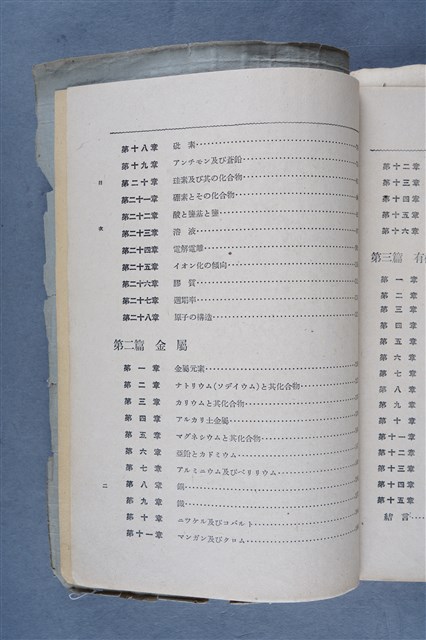 第十八章 砒素
第十九章 アンチモン及び蒼鉛
第二十章 硅素及び其の化合物
第二十一章 硼素とその化合物
第二十二章 酸と鹽基と鹽
第二十三章 溶液
第二十四章 電解電離
第二十五章 イオン化の傾向
第二十六章 膠質
第二十七章 週期率
第二十八章 原子の構造
第二篇 金屬
第一章 金屬元素
第二章 ナトリウム(ソヂイウム)と其化合物
第三章 カリウムと其化合物
第四章 アルカリ土金屬
第五章 マグネシウムと其化合物
第六章 亞鉛とカドミウム
第七章 アルミニウム及びベリリウム
第八章
第九章
第十章 ニツケル及びコバルト
第十一章 マンガン及びクロム
目次
二
第十二章
第十三章
第十四章
第十五章
第十六章
第三篇 有
第一章
第二章
第三章
第四章
第五章
第六章
第七章
第八章
第九章
第十章
第十一章
第十二章
第十三章
第十四章
第十五章
結言